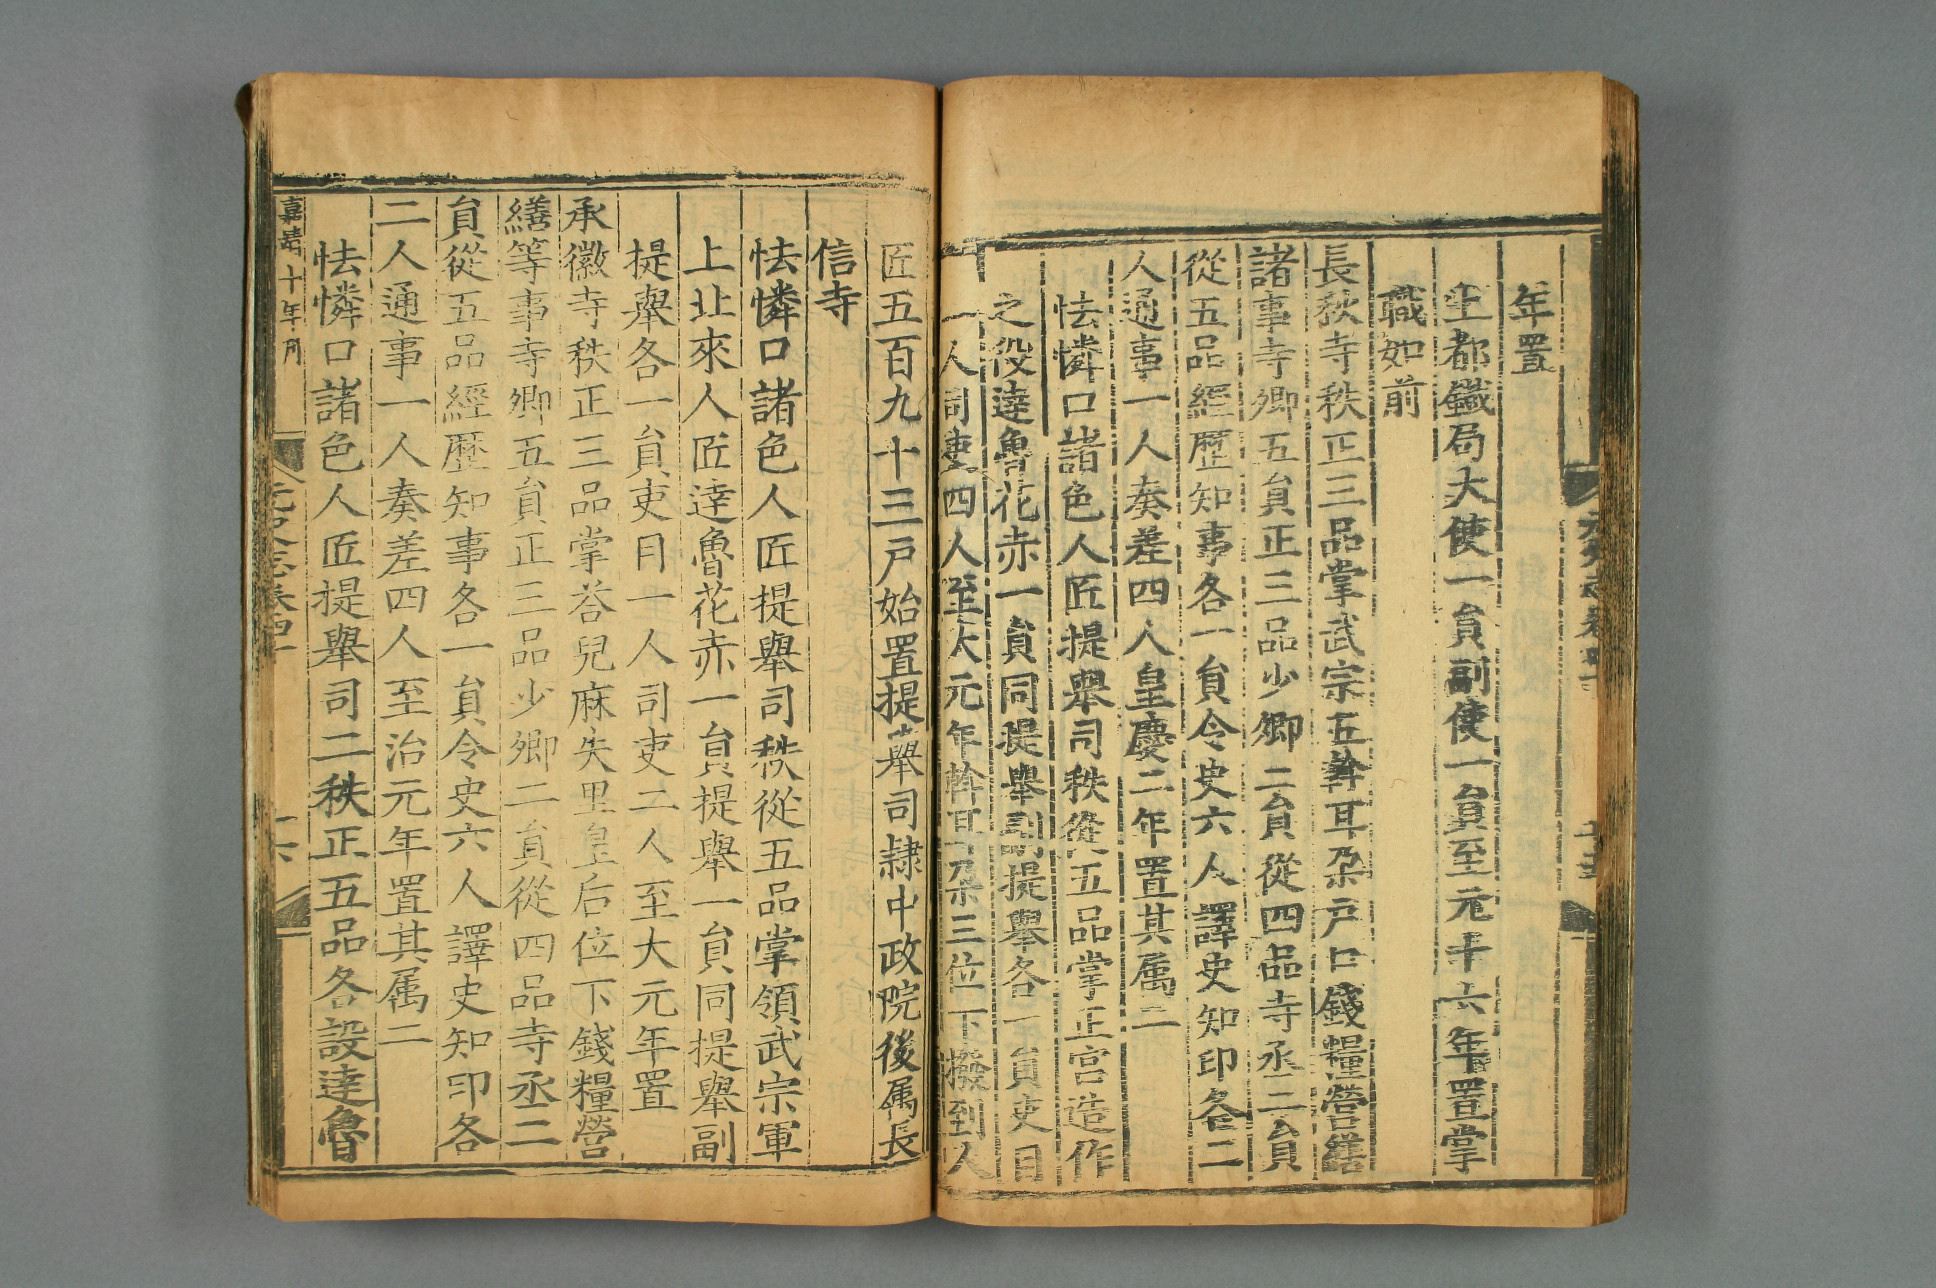 年置
上都鐵局大使一員副使一員至元十六年置掌
職如前
長秋寺秩正三品掌武宗五斡耳朶戶口錢糧營繕
諸事寺卿五員正三品少卿二員從四品寺丞二員
從五品經歷知事各一員令史六人譯史知印各二
人通事一人奏差四人皇慶二年置其属二
怯憐口諸色人匠提舉司秩從五品掌正宮造作
之役達魯花赤一員同提舉副提舉各一員吏目
一人司吏四人至大元年斡耳朶三位下撥到人
匠五百九十三戸始置提舉司隷中政院後属長
信寺
怯憐口諸色人匠提舉司秩從五品掌領武宗軍
上北來人匠達魯花赤一員提舉一員同提舉副
提舉各一員吏目一人司吏二人至大元年置
承徽寺秩正三品掌荅兒麻失里皇后位下錢糧營
繕等事寺卿五員正三品少卿二員從四品寺丞二
員從五品經歷知事各一員令史六人譯史知印各
二人通事一人奏差四人至治元年置其属二
怯憐口諸色人匠提舉司二秩正五品各設達魯
嘉靖十年刋
元史志卷四十
十六